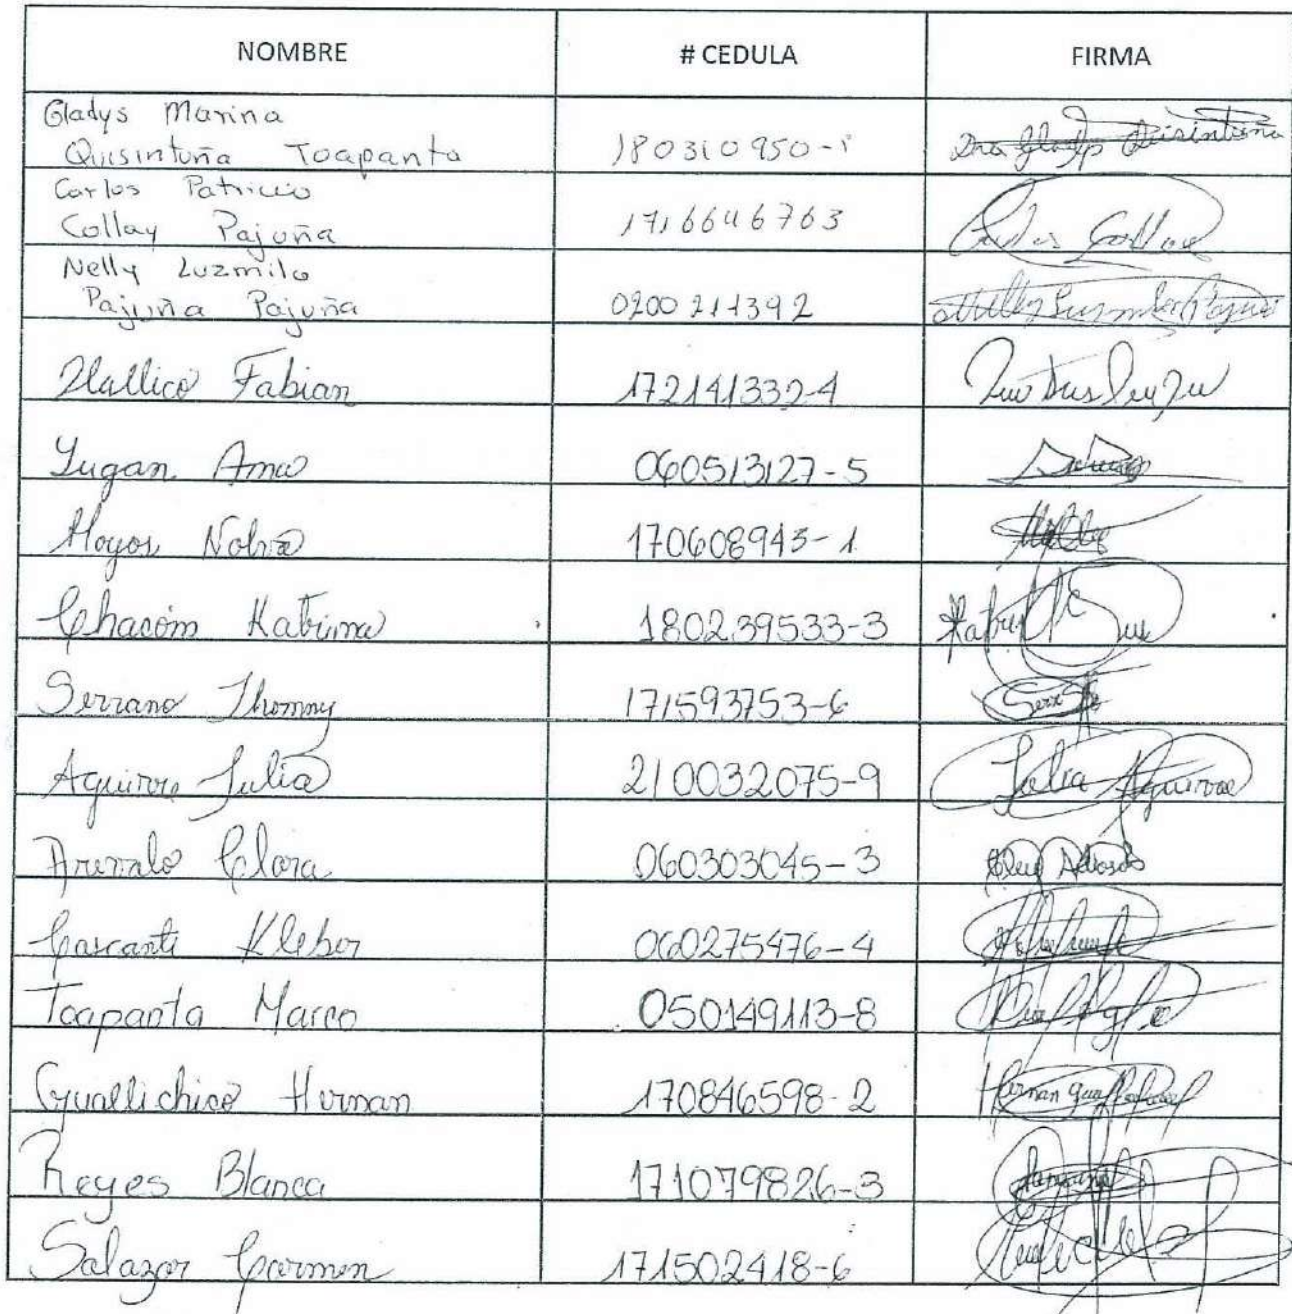 NOMBRE # CEDULA FIRMA
Gladys Marina
Quisintuña Toapanta 180310950-1 Dra Gladys Quisintuña
Carlos Patricio
Collay Pajuña 1716646763 Carlos Collay
Nelly Luzmila
Pajuña Pajuña 0200211392 Nelly Luzmila Pajuña
Fabian 172141332-4
Lugan Ama 060513127-5
Hoyos Nolva 170608943-1
Chacóm Katrina 180239533-3
Serrano Jhonny 171593753-6
Aguirre Julia 210032075-9 Julia Aguirre
Arevalo Clara 060303045-3
Cascante Klebor 060275476-4
Toapanta Marco 050149113-8
Guallichico Hernan 170846598-2 Hernan
Reyes Blanca 171079826-3
Salazar Carmen 171502418-6